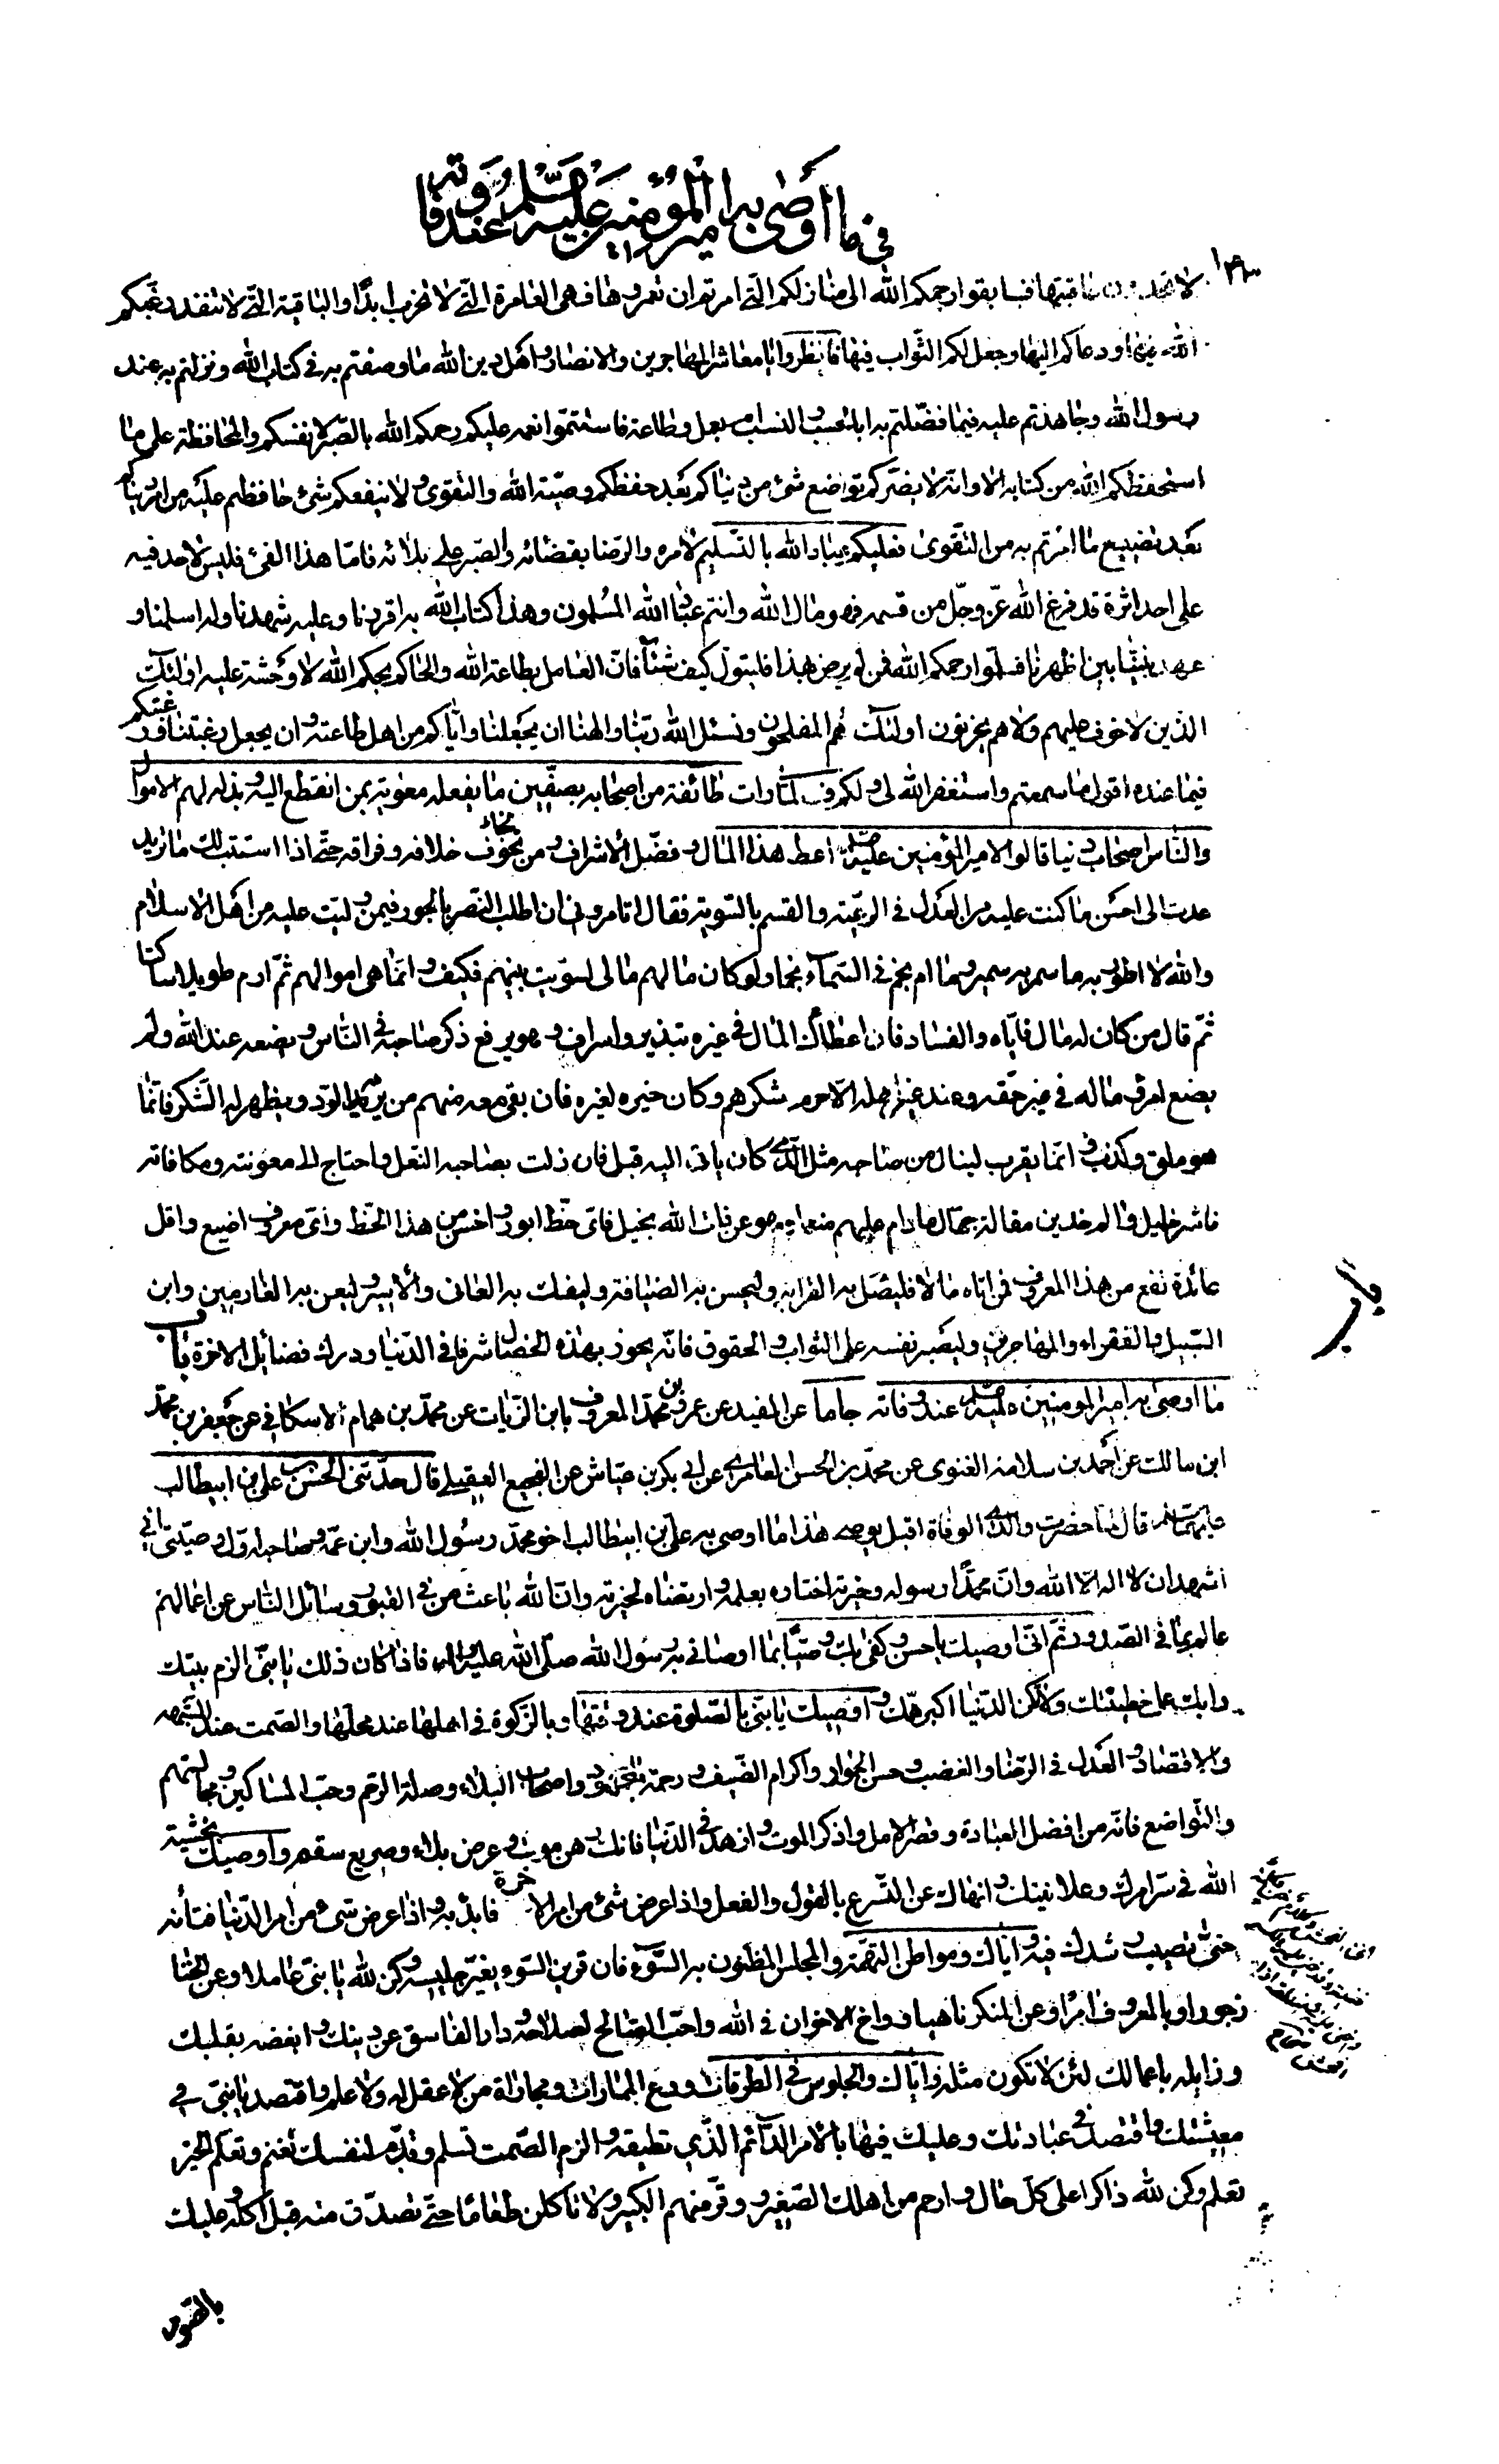 في ما اوصى به امير المؤمنين عليه السلم عند وفاته
لا تحمدون عاقبتها فسابقوا رحمكم الله الى منازلكم التي امرتم ان تعمروها فهي العامرة التي لا تخرب ابدًا والباقية التي لا تنفد رغبكم
الله فيها ودعاكم اليها وجعل لكم الثواب فيها فانظروا يا معاشر المهاجرين والانصار واهل دين الله ما وصفتم به في كتاب الله ونزلتم به عند
رسول الله وجاهدتم عليه فيما فضلتم به ابالحسب والنسب ام بعمل وطاعة فاستتموا نعمه عليكم رحمكم الله بالصبر لانفسكم والمحافظة على ما
استحفظكم الله من كتابه الا وانه لا يضركم تواضع شئ من دنياكم بعد حفظكم وصيّة الله والتقوى ولا ينفعكم شئ حافظتم عليه من امر دنياكم
بعد تضييع ما امرتم به من التقوى فعليكم عباد الله بالتسليم لامره والرضا بقضائه والصبر على بلائه فامّا هذا الفئ فليس لاحد فيه
على احد اثرة قد فرغ الله عزّ وجلّ من قسمه فهو مال الله وانتم عباد الله المسلمون وهذا كتاب الله به اقررنا وعليه شهدنا وله اسلمنا و
عهد نبيّنا بين اظهرنا فسلّموا رحمكم الله فمن لم يرض بهذا فليتولّ كيف شاء فانّ العامل بطاعة الله والحاكم بحكم الله لا وحشة عليه اولئك
الذين لا خوف عليهم ولا هم يحزنون اولئك هم المفلحون ونسئل الله ربّنا والهنا ان يجعلنا وايّاكم من اهل طاعته وان يجعل رغبتنا ورغبتكم
فيما عنده اقول ما سمعتم واستغفر الله لي ولكم ف لما رات طائفة من اصحابه بصفّين ما يفعله معوية بمن انقطع اليه وبذله لهم الاموال
والناس اصحاب دنيا قالوا لامير المؤمنين عليه السلم اعط هذا المال وفضّل الاشراف ومن تخوف خلافه وفراقه حتّى اذا استتب لك ما تريد
عدت الى احسن ما كنت عليه من العدل في الرعيّة والقسم بالسّوية فقال اتامروني ان اطلب النصر بالجور فيمن وليت عليه من اهل الاسلام
والله لا اطور به ما سمر به سمير وما ام نجم في السّماء نجما ولو كان مالهم مالى لسوّيت بينهم فكيف وانّما هي اموالهم ثمّ ارم طويلا ساكتا
ثمّ قال من كان له مال فايّاه والفساد فان اعطاك المال في غيره تبذير واسراف وهو يرفع ذكر صاحبه في الناس ويضعه عند الله ولم
يضع امرؤ ماله في غير حقّه وعند غير اهله الّا حرم شكرهم وكان خيره لغيره فان بقي معه منهم من يريه الودّ ويظهر له الشكر فانّما
هو ملق وكذب وانّما يقرب لينال من صاحبه مثل الّذي كان ياتي اليه قبل فان زلت بصاحبه النعل واحتاج الى معونته ومكافاته
فاشر خليل والم خدين مقالة جهّال ما دام عليهم منعما وهو عن ذات الله بخيل فاى حظّ ابور واخس من هذا الحظّ واى معروف اضيع واقل
عائدة نفع من هذا المعروف فمن اتاه مالا فليصل به القرابة وليحسن به الضيافة وليفك به العاني والاسير وليعن به الغارمين وابن
السّبيل والفقراء والمهاجرين وليصبر نفسه على الثواب والحقوق فانّه يحوز بهذه الخصال شرفا في الدنيا ودرك فضائل الاخرة باب
ما اوصى به امير المؤمنين عليه السلم عند وفاته جا ما عن المفيد عن عمر بن محمّد المعروف بابن الزيات عن محمّد بن همام الاسكافي عن جعفر بن محمّد
ابن مالك عن احمد بن سلامة الغنوى عن محمّد بن الحسن العامري عن ابي بكر بن عيّاش عن الفجيع العقيلي قال حدّثني الحسن بن علي بن ابيطالب
عليهما السلم قال لما حضرت والدي الوفاة اقبل يوصي هذا ما اوصى به علي بن ابيطالب اخو محمّد رسول الله وابن عمّه وصاحبه اول وصيّتي انّي
اشهد ان لا اله الا الله وانّ محمّدًا رسوله وخيرته اختاره بعلمه وارتضاه لخيرته وانّ الله باعث من في القبور وسائل الناس عن اعمالهم
عالم بما في الصدور ثمّ انّي اوصيك يا حسن وكفى بك وصيّا بما اوصاني به رسول الله صلّى الله عليه واله فاذا كان ذلك يا بنيّ الزم بيتك
وابك على خطيئتك ولا تكن الدنيا اكبر همّك واوصيك يا بنيّ بالصلوة عند وقتها وبالزكوة في اهلها عند محلّها والصمت عند الشبهة
والاقتصاد والعدل في الرضا والغضب وحسن الجوار واكرام الضيف ورحمة المجهود واصحاب البلاء وصلة الرحم وحبّ المساكين ومجالستهم
والتواضع فانّه من افضل العبادة وقصر الامل واذكر الموت وازهد في الدنيا فانك رهن موت وعرض بلاء وصريع سقم واوصيك بخشية
الله في سرّ امرك وعلانيتك وانهاك عن التسرع بالقول والفعل واذا عرض شئ من امر الاخرة فابدء به واذا عرض شئ من امر الدنيا فتانّه
حتّى تصيب رشدك فيه وايّاك ومواطن التهمة والمجلس المظنون به السّوء فان قرين السّوء يغيّر جليسه وكن لله يا بنيّ عاملا وعن الخنا
زجورا وبالمعروف امرا وعن المنكر ناهيا وواخ الاخوان في الله واحبّ الصالح لصلاحه ودار الفاسق عن دينك وابغضه بقلبك
وزايله باعمالك لئن لا تكون مثله وايّاك والجلوس في الطرقات ودع المماراة ومجاراة من لا عقل له ولا علم واقتصد يا بنيّ في
معيشتك واقتصد في عبادتك وعليك فيها بالامر الدائم الّذي تطيقه والزم الصمت تسلم وقدّم لنفسك تغنم وتعلّم الخير
تعلم وكن لله ذاكرا على كلّ حال وارحم من اهلك الصغير ووقّر منهم الكبير ولا تاكلن طعاما حتّى تصدّق منه قبل اكله وعليك
بالصوم
باب